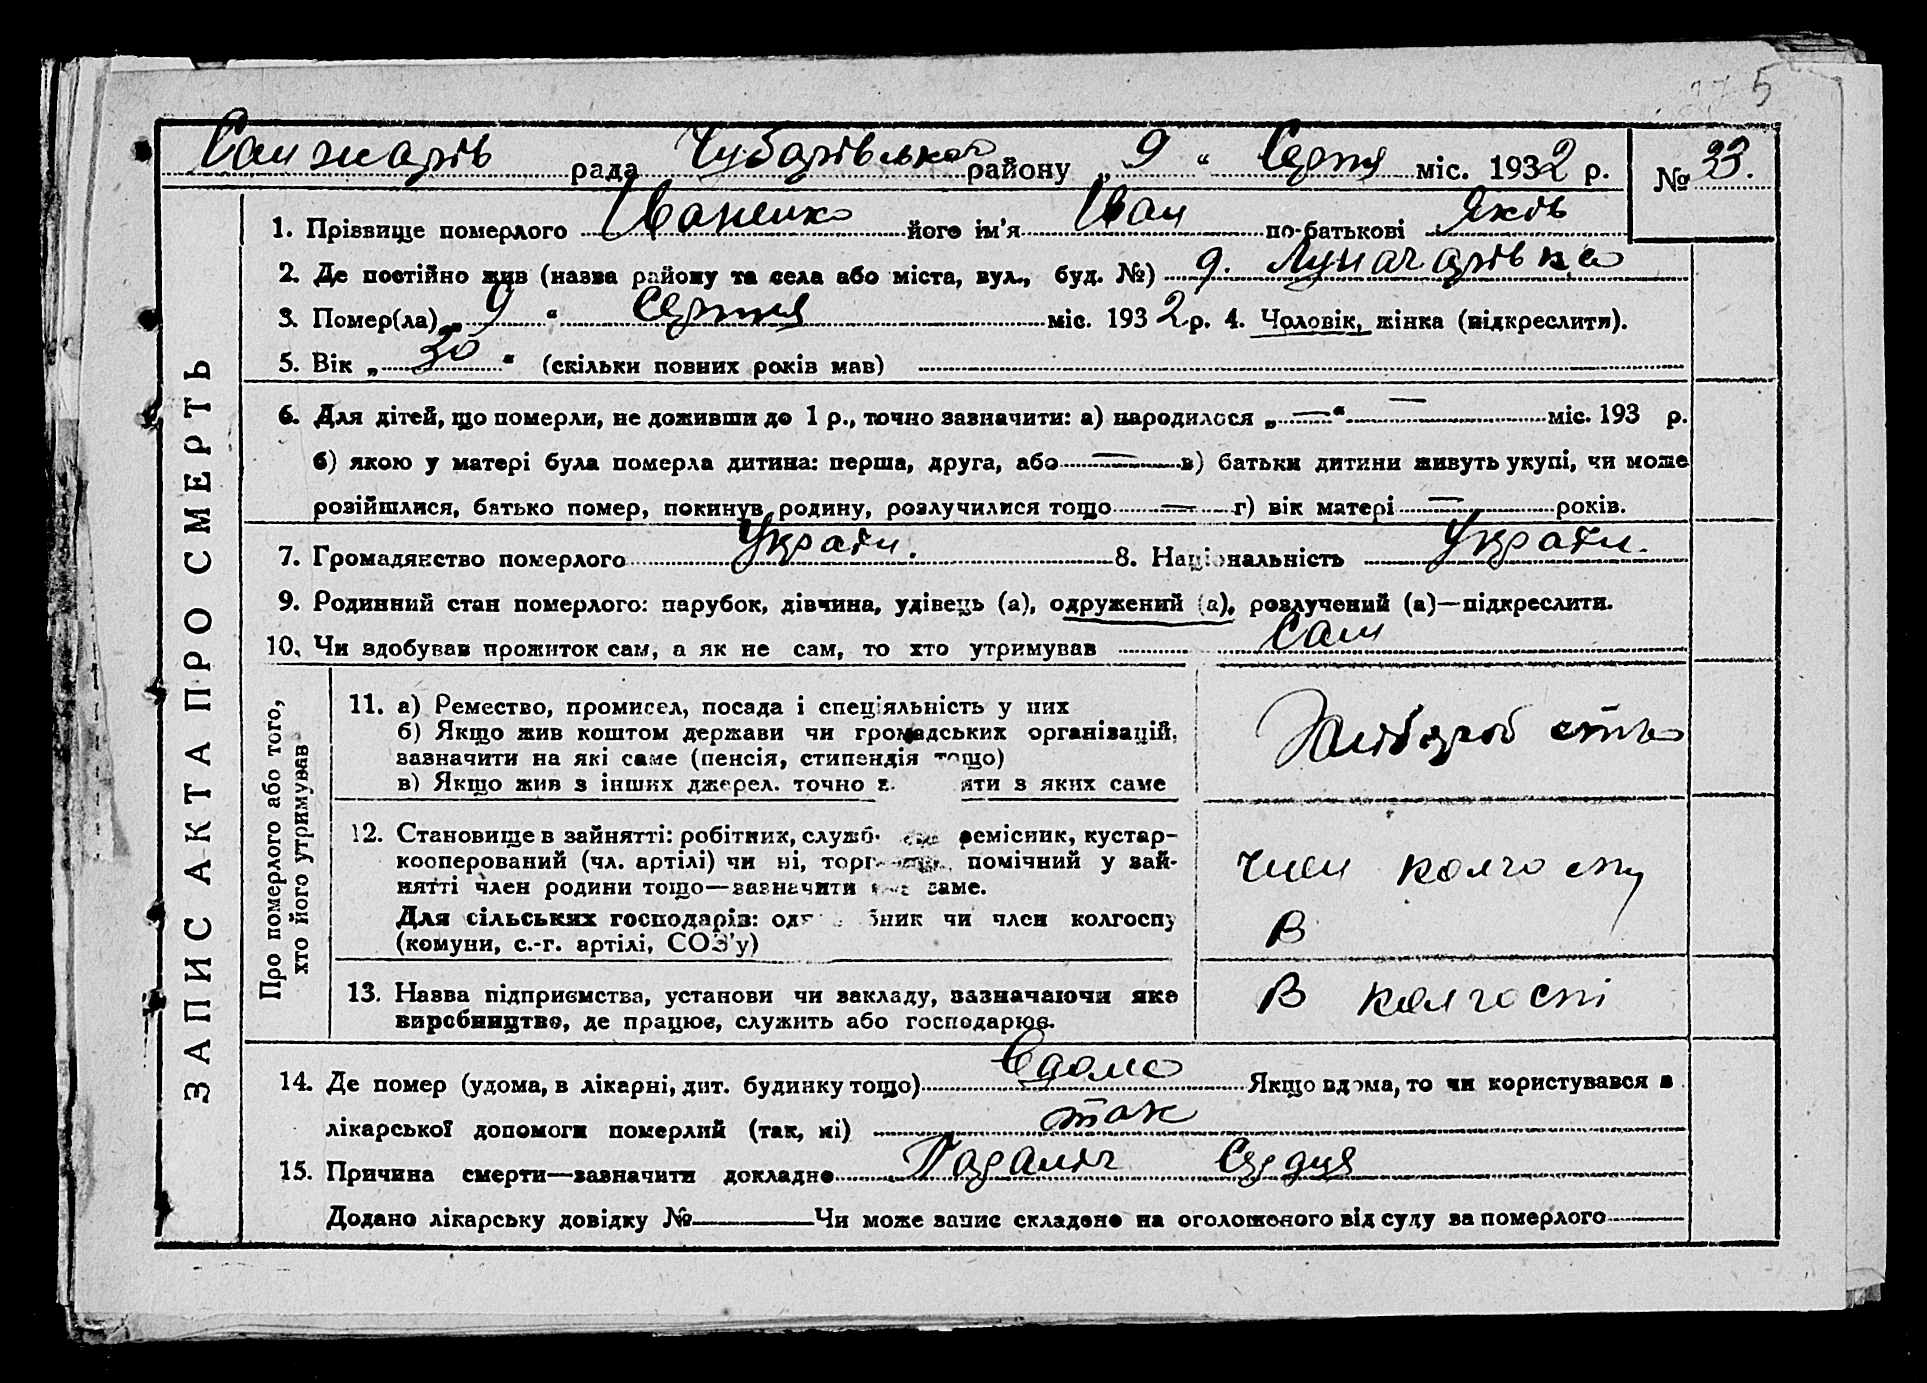 5
Санжарів рада Чубарівського району „ 9 “ Серпня міс. 1932 р. № 33.
1. Прізвище померлого Іваненко його ім’я Іван по-батькові Яків
2. Де постійно жив (назва району та села або міста, вул., буд. №) д. Луначарівка
3. Помер(ла) „ 9 “ Серпня міс. 1932 р. 4. Чоловік, жінка (підкреслити).
5. Вік „ 30 “ (скільки повних років мав)
6. Для дітей, що померли, не доживши до 1 р., точно зазначити: а) народилося „ — “ — міс. 193 р.
б) якою у матері була померла дитина: перша, друга, або — в) батьки дитини живуть укупі, чи може
розійшлися, батько помер, покинув родину, розлучилися тощо — г) вік матері — років.
7. Громадянство померлого Україн. 8. Національність Україн.
9. Родинний стан померлого: парубок, дівчина, удівець (а), одружений (а), розлучений (а)—підкреслити.
10. Чи здобував прожиток сам, а як не сам, то хто утримував Сам
ЗАПИС АКТА ПРО СМЕРТЬ
Про померлого або того,
хто його утримував
11. а) Ремество, промисел, посада і спеціяльність у них
б) Якщо жив коштом держави чи громадських організацій,
зазначити на які саме (пенсія, стипендія тощо)
в) Якщо жив з інших джерел. точно з яких саме
Хлібороб ство
12. Становище в зайнятті: робітник, службовець, ремісник, кустар-
кооперований (чл. артілі) чи ні, помічний у зай-
нятті член родини тощо—зазначити саме.
Для сільських господарів: чи член колгоспу
(комуни, с.-г. артілі, СОЗ’у)
член колгоспу
В
13. Назва підприємства, установи чи закладу, зазначаючи яке
виробництво, де працює, служить або господарює.
В колгоспі
14. Де помер (удома, в лікарні, дит. будинку тощо) Вдома Якщо вдома, то чи користувався з
лікарської допомоги померлий (так, ні) так
15. Причина смерти—зазначити докладно Параліч Сердця
Додано лікарську довідку № — Чи може запис складено на оголошеного від суду за померлого